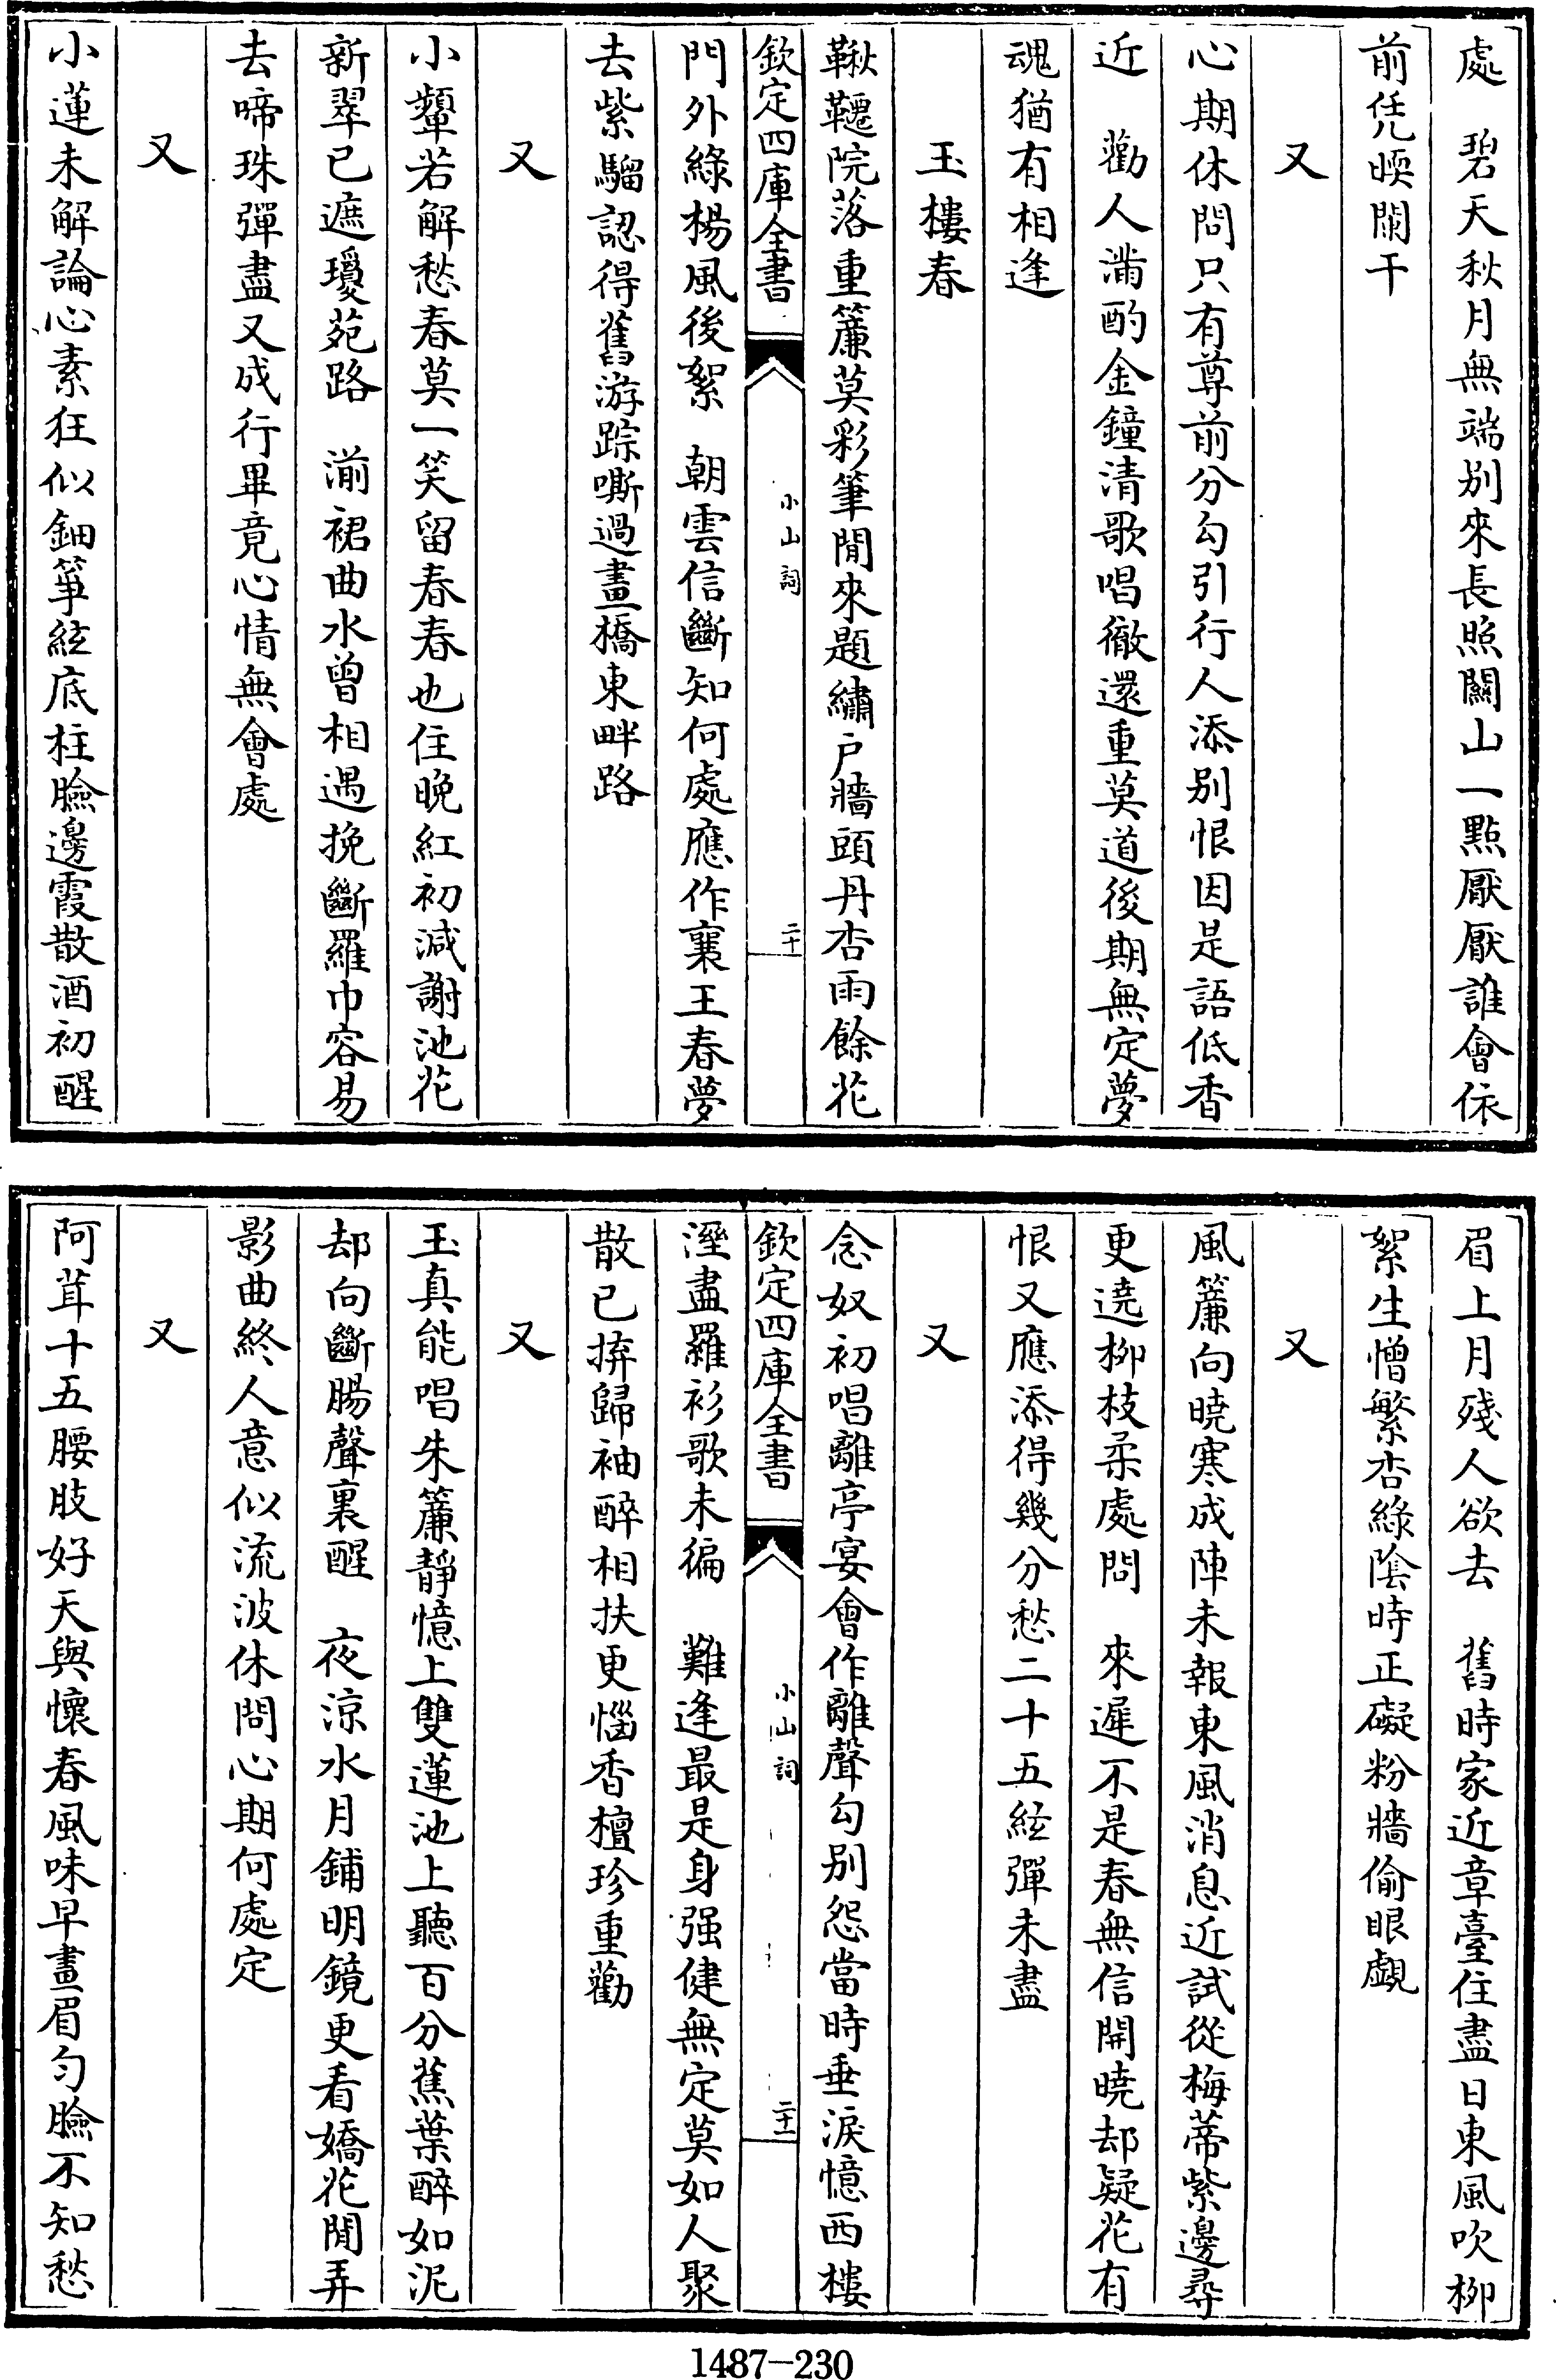 處　碧天秋月無端别來長照關山一點厭厭誰會依
前凭暎闌干
又
心期休問只有尊前分勾引行人添别恨因是語低香
近　勸人滿酌金鐘清歌唱徹還重莫道後期無定夢
魂猶有相逢
玉樓春
鞦韆院落重簾莫彩筆閒來題繡户牆頭丹杏雨餘花
欽定四庫全書
小山詞
二十
門外綠楊風後絮　朝雲信斷知何處應作襄王春夢
去紫騮認得舊游踪嘶過畫橋東畔路
又
小顰若解愁春莫一笑留春春也住晚紅初減謝池花
新翠已遮瓊苑路　湔裙曲水曾相遇挽斷羅巾容易
去啼珠彈盡又成行畢竟心情無會處
又
小蓮未解論心素狂似鈿箏絃底柱臉邊霞散酒初醒
眉上月殘人欲去　舊時家近章臺住盡日東風吹柳
絮生憎繁杏綠陰時正礙粉牆偷眼覷
又
風簾向曉寒成陣未報東風消息近試從梅蒂紫邊尋
更遶柳枝柔處問　來遲不是春無信開曉却疑花有
恨又應添得幾分愁二十五絃彈未盡
又
念奴初唱離亭宴會作離聲勾别怨當時垂淚憶西樓
欽定四庫全書
小山詞
二十一
溼盡羅衫歌未徧　難逢最是身强健無定莫如人聚
散已拚歸袖醉相扶更惱香檀珍重勸
又
玉真能唱朱簾靜憶上雙蓮池上聽百分蕉葉醉如泥
却向斷腸聲裏醒　夜涼水月鋪明鏡更看嬌花閒弄
影曲終人意似流波休問心期何處定
又
阿茸十五腰肢好天與懷春風味早畫眉匀臉不知愁
1487-230